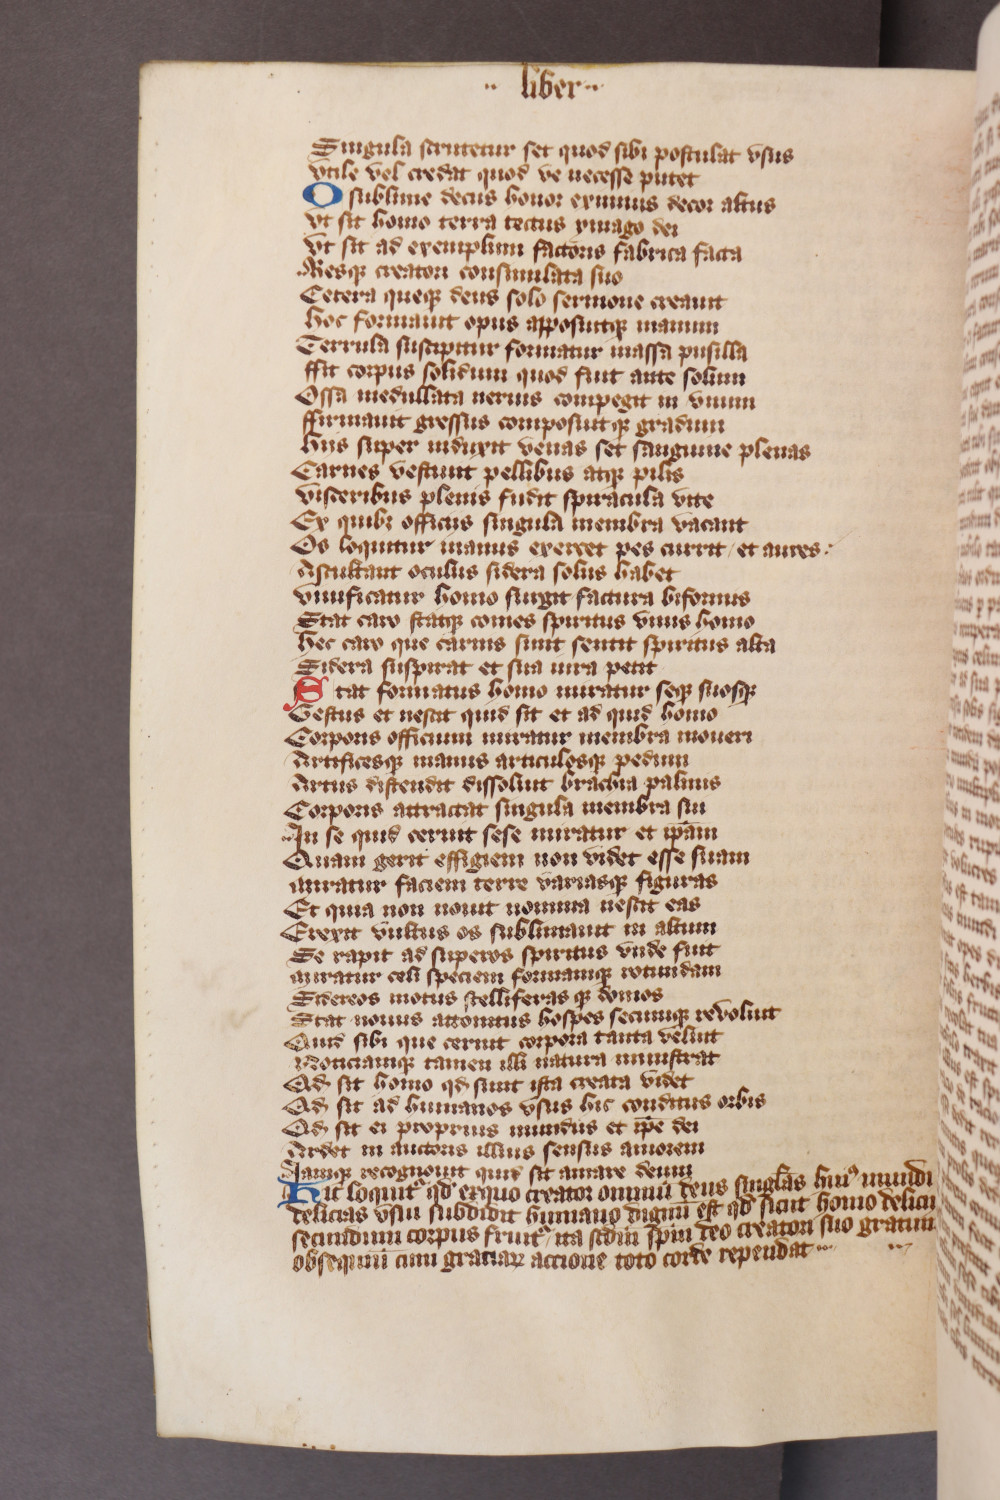 ·· liber ··
Singula scrutetur set quod sibi postulat vsus
vtile vel credat quod ve necesse putet
O sublime decus honor eximius decor altus
vt sit homo terra tectus ymago dei
vt sit ad exemplum factoris fabrica facta
Resqꝫ creatori consimulata suo
Cetera queqꝫ deus solo sermone creauit
Hoc formauit opus apposuitqꝫ manum
Terrula suscipitur formatur massa pusilla
ffit corpus solidum quod fuit ante solum
Ossa medullata neruis compegit in vnum
ffirmauit gressus composuitqꝫ gradum
Hiis super induxit venas set sanguine plenas
Carnes vestiuit pellibus atqꝫ pilis
visceribus plenis fudit spiracula vite
Ex quibꝫ officiis singula membra vacant
Os loquitur manus exercet pes currit / et aures
Ascultant oculus sidera solus habet
viuificatur homo surgit factura biformis
Stat caro statqꝫ comes spiritus vnus homo
Hec caro que carnis sunt sentit spiritus alta
Sidera suspirat et sua iura petit
Stat formatus homo miratur seqꝫ suosqꝫ
Gestus et nescit quid sit et ad quid homo
Corporis officium miratur membra moueri
Artificesqꝫ manus articulosqꝫ pedum
Artus distendit dissoluit brachia palmis
Corporis attractat singula membra sui
In se quid cernit sese miratur et ip̄am
Quam gerit effigiem non videt esse suam
miratur faciem terre variasqꝫ figuras
Et quia non nouit nomina nescit eas
Erexit vultus os sublimauit in altum
Se rapit ad superos spiritus vnde fuit
miratur celi speciem formamqꝫ rotundam
Sidereos motus stelliferas qꝫ domos
Stat nouus attonitus hospes secumqꝫ reuoluit
Quid sibi que cernit corpora tanta velint
Noticiamqꝫ tamen illi natura ministrat
Qd̛ sit homo qd̛ sunt ista creata videt
Qd̛ sit ad humanos vsus hic conditus orbis
Qd̛ sit ei proprius mundus et ip̄e dei
Ardet in auctoris illius sensus amorem
Iamqꝫ recognouit quid sit amare deum
Hic loquit᷑ qd̛ exquo creator omniū deus singl̄as huiꝰ mundi
delicias vsui subdidit humano dignū est qd̛ sicut homo delicii
secundum corpus fruit᷑ / ita scdm̄ spm̄ deo creatori suo gratum
obsequiū cum graciaꝝ accione toto corde rependat